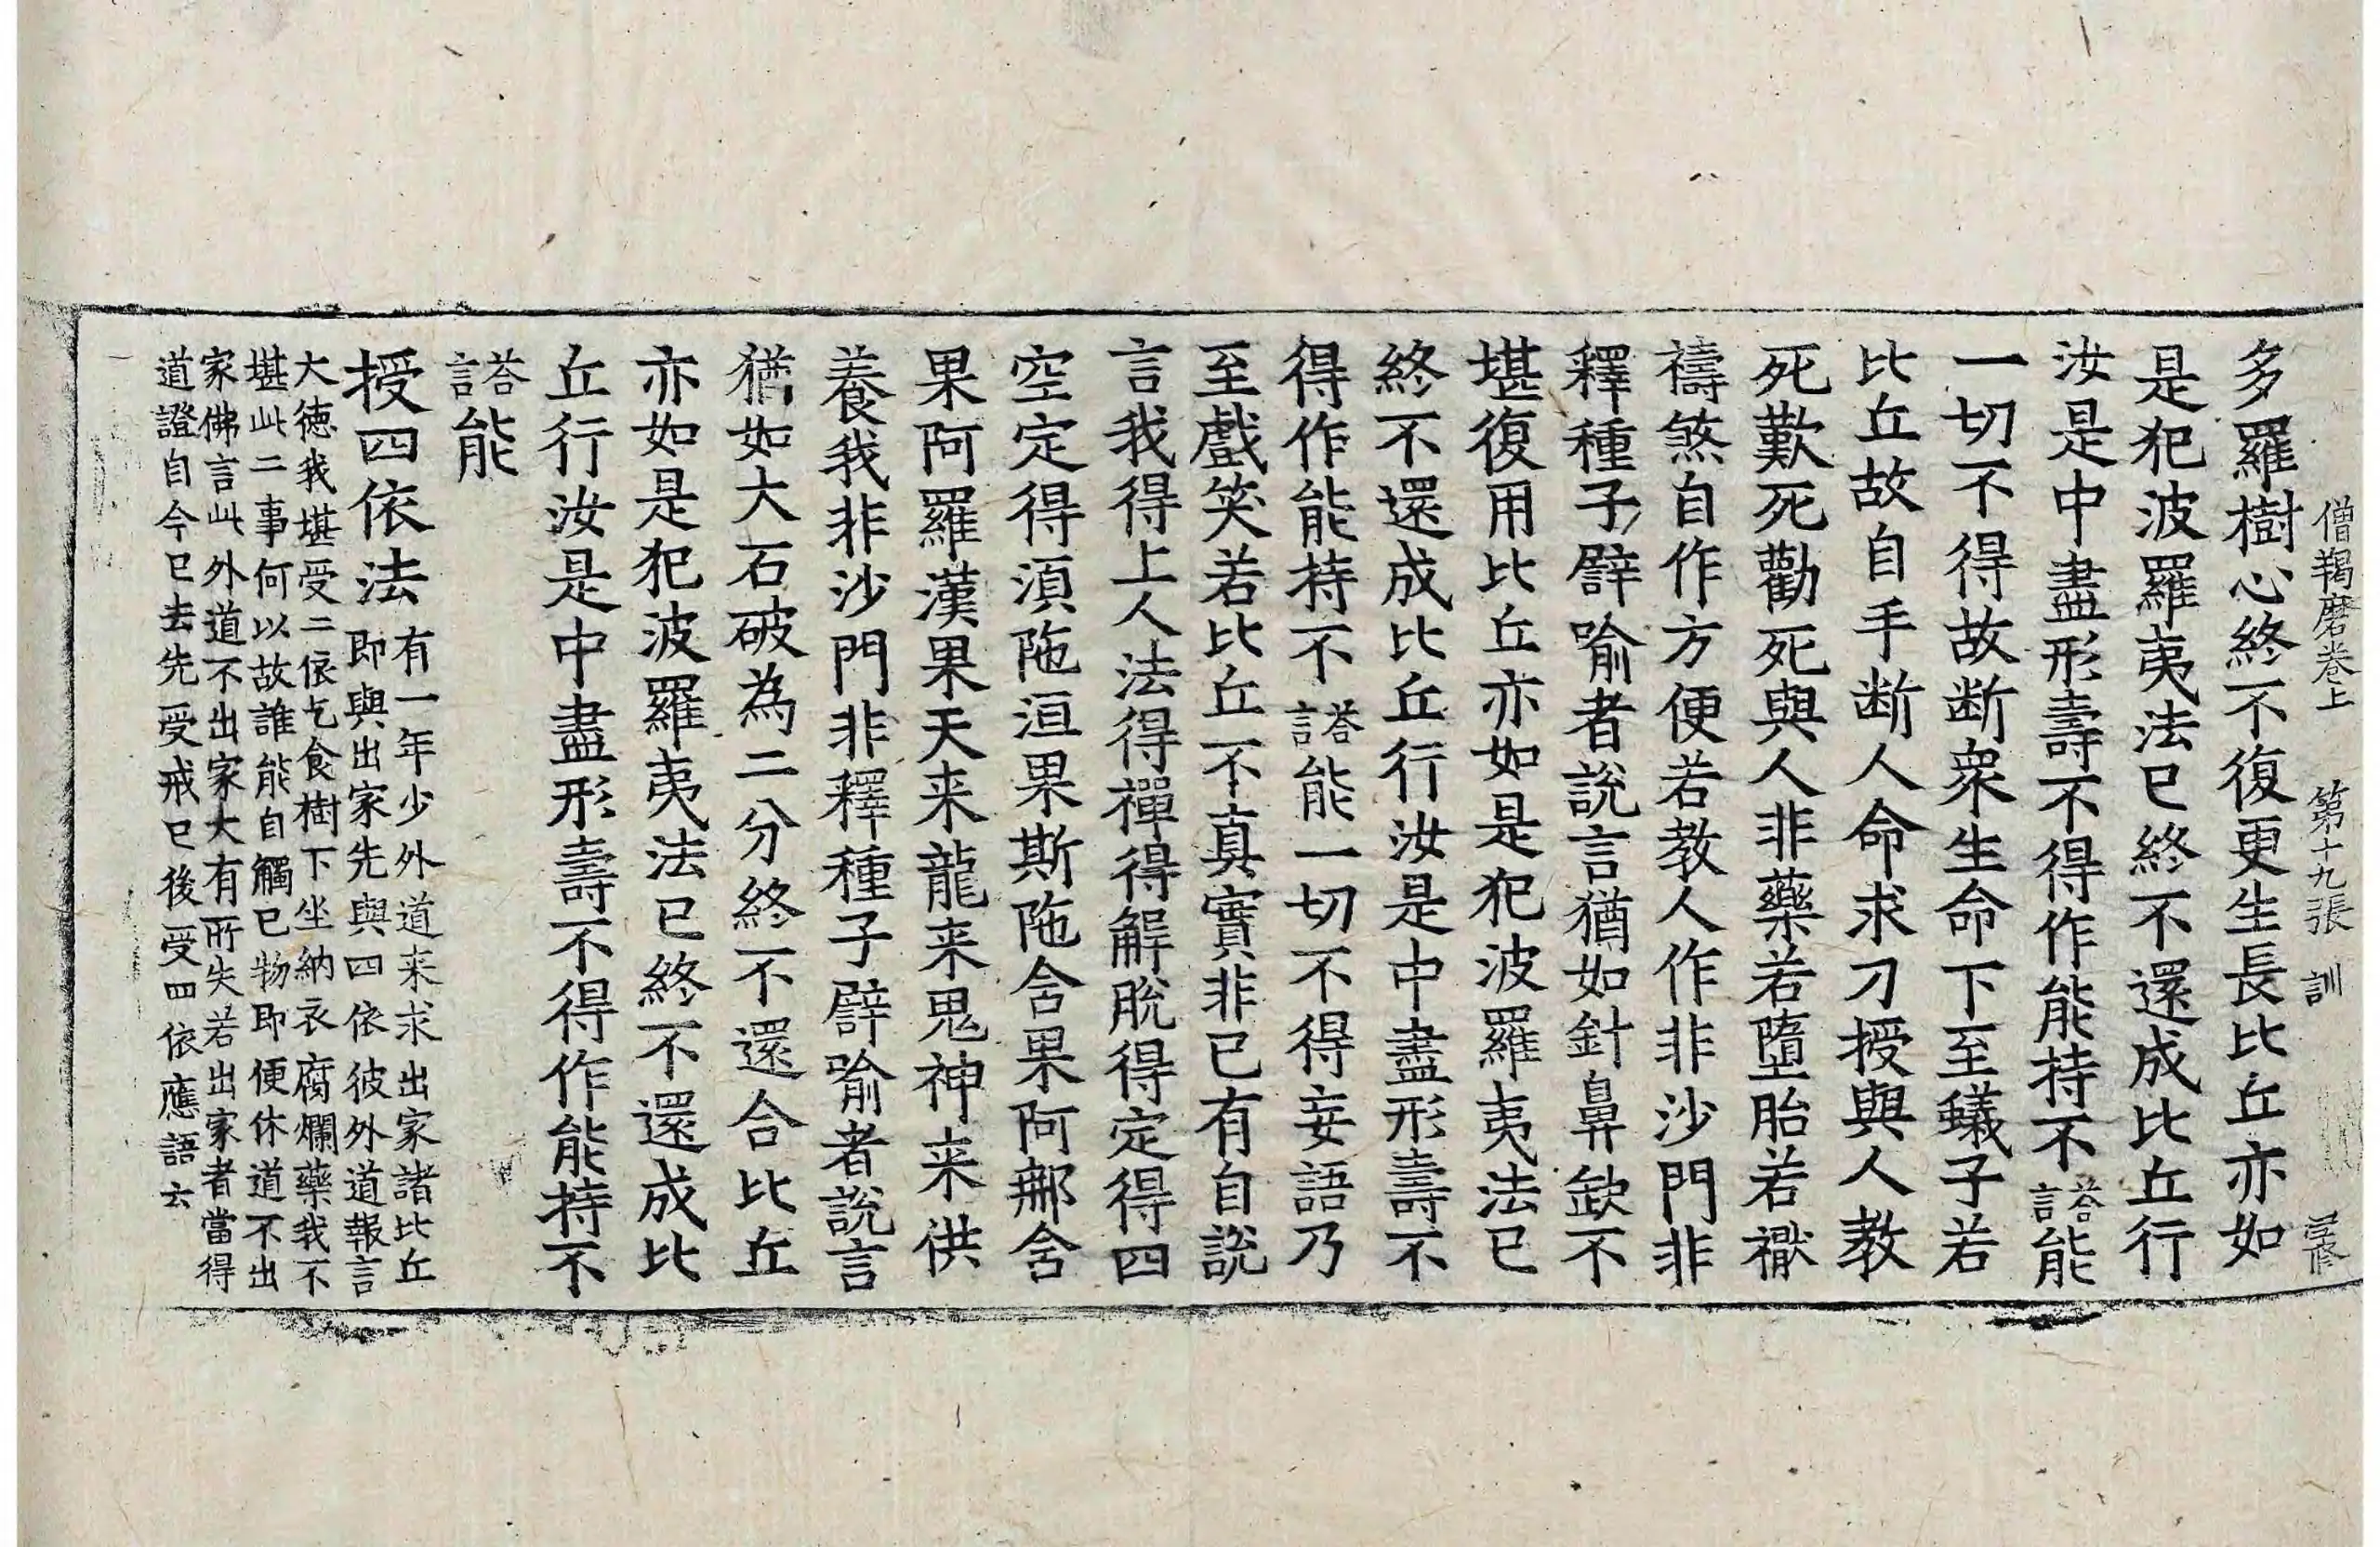 僧羯磨卷上 第十九張 訓
多羅樹心終不復更生長比丘亦如
是犯波羅夷法已終不還成比丘行
汝是中盡形壽不得作能持不答言能
一切不得故断衆生命下至蟻子若
比丘故自手断人命求刀授與人教
死歎死勸死與人非藥若墮胎若𥜒
禱煞自作方便若教人作非沙門非
釋種子譬喻者說言猶如針鼻缺不
堪復用比丘亦如是犯波羅夷法已
終不還成比丘行汝是中盡形壽不
得作能持不答言能一切不得妄語乃
至戲笑若比丘不真實非已有自說
言我得上人法得禪得解脫得定得四
空定得湏陁洹果斯陁含果阿那含
果阿羅漢果天来龍来鬼神来供
養我非沙門非釋種子譬喻者說言
猶如大石破為二分終不還合比丘
亦如是犯波羅夷法已終不還成比
丘行汝是中盡形壽不得作能持不
答言能
授四依法有一年少外道来求出家諸比丘
即與出家先與四依彼外道報言
大德我堪受二依乞食樹下坐納衣腐爛藥我不
堪此二事何以故誰能自觸已物即便休道不出
家佛言此外道不出家大有所失若出家者當得
道證自今已去先受戒已後受四依應語云